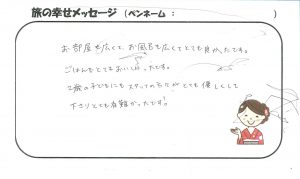 旅の幸せメッセージ (ペンネーム： )
お部屋も広くて、お風呂も広くてとても良かったです。
ごはんもとてもおいしかったです。
2歳の子どもにもスタッフの方たちがとても優しくして
下さりとても有難かったです。